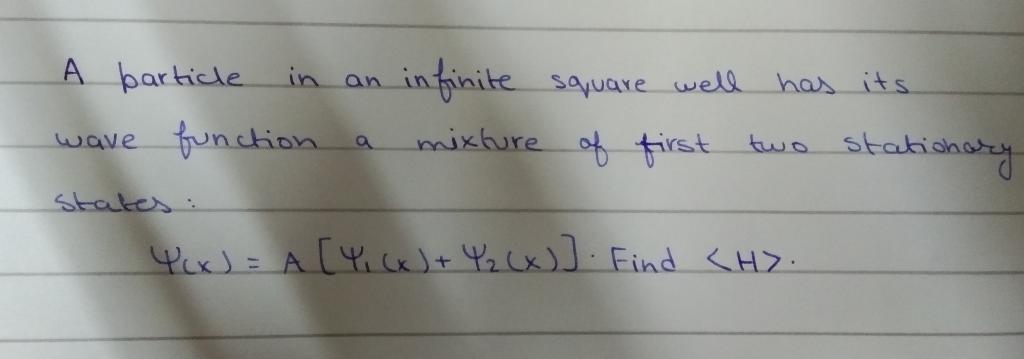 A particle in an infinite square well has its
wave function a mixture of first two stationary
states:
Ψ(x) = A [Ψ₁(x) + Ψ₂(x)]. Find <H>.